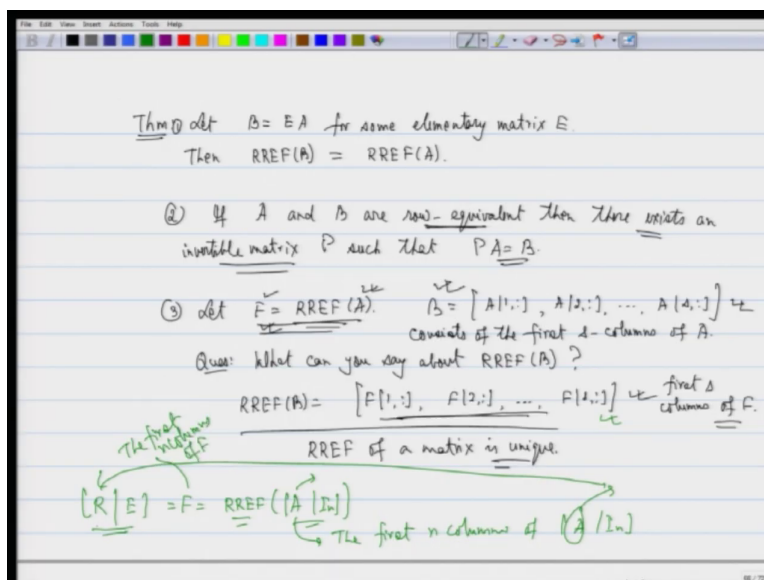 File Edit View Insert Actions Tools Help
Thm ① Let B = EA for some elementary matrix E.
Then RREF(B) = RREF(A).
② If A and B are row-equivalent then there exists an
invertible matrix P such that PA = B.
③ Let F = RREF(A). B = [A[1,:], A[2,:], ..., A[s,:]]
consists of the first s-columns of A.
Ques: What can you say about RREF(B)?
RREF(B) = [F[1,:], F[2,:], ..., F[s,:]] first s
columns of F.
RREF of a matrix is unique.
The first
n columns
of F
[R|E] = F = RREF([A|In])
The first n columns of [A/In]